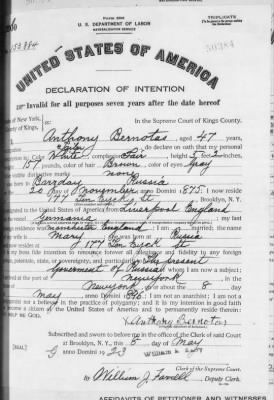 Form 2203
TRIPLICATE
U. S. DEPARTMENT OF LABOR
NATURALIZATION SERVICE
153884
UNITED STATES OF AMERICA
DECLARATION OF INTENTION
Invalid for all purposes seven years after the date hereof
of New York,
ty of Kings,
In the Supreme Court of Kings County.
Anthony Bernotas aged 47 years,
do declare on oath that my personal
Color White complexion Fair height 5 feet 2 inches,
157 pounds, color of hair Brown color of eyes Gray
visible distinctive marks none
Russia
20 day of anno Domini 1875; I now reside
177 Ten Eyck St Brooklyn, N. Y.
the United States of America from Liverpool England
my last
Manchester England I am married; the name
wife is Mary born at Russia
now reside at 177 Ten Eyck St
my bona fide intention to renounce forever all allegiance and fidelity to any foreign
potentate, state, or sovereignty, and particularly to The present
Government of Russia of whom I am now a subject;
arrived at the port of Newyork in the
Newyork on or about the 8 day
May anno Domini 1896; I am not an anarchist; I am not a
nor a believer in the practice of polygamy; and it is my intention in good faith
become a citizen of the United States of America and to permanently reside therein:
HELP ME GOD.
Anthony Bernotas
Subscribed and sworn to before me in the office of the Clerk of said Court
at Brooklyn, N. Y., this 5 day of May
[SEAL]
anno Domini 1923
Clerk of the Supreme Court.
By William J. Deputy Clerk.
AFFIDAVITS OF PETITIONER AND WITNESSES